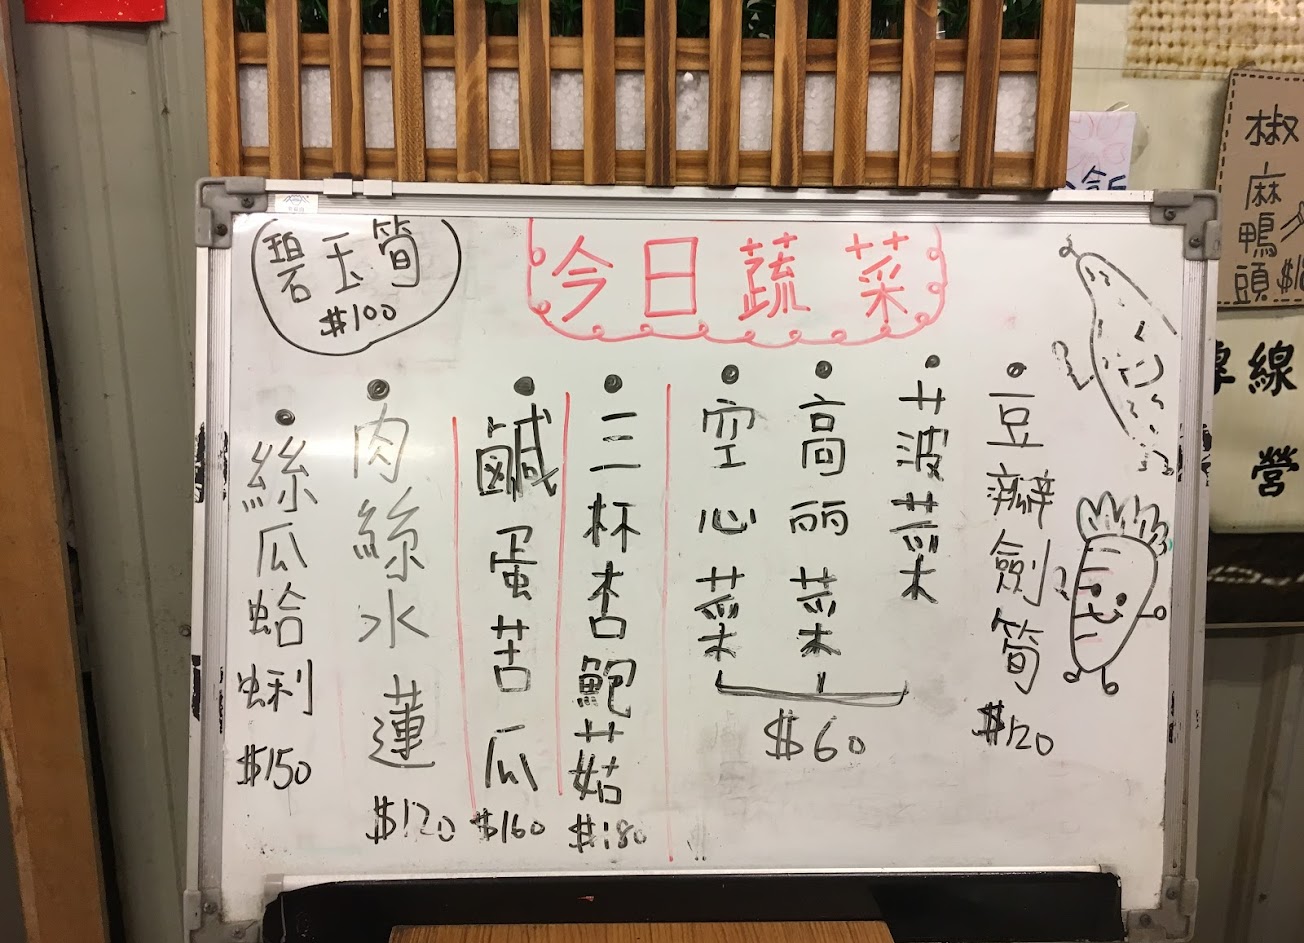 今日蔬菜
豆瓣劍筍
$120
菠菜
高丽菜
空心菜
$60
三杯杏鮑菇
$180
鹹蛋苦瓜
$160
肉絲水蓮
$120
絲瓜蛤蜊
$150
碧玉筍
$100
椒麻鴨頭
線
營